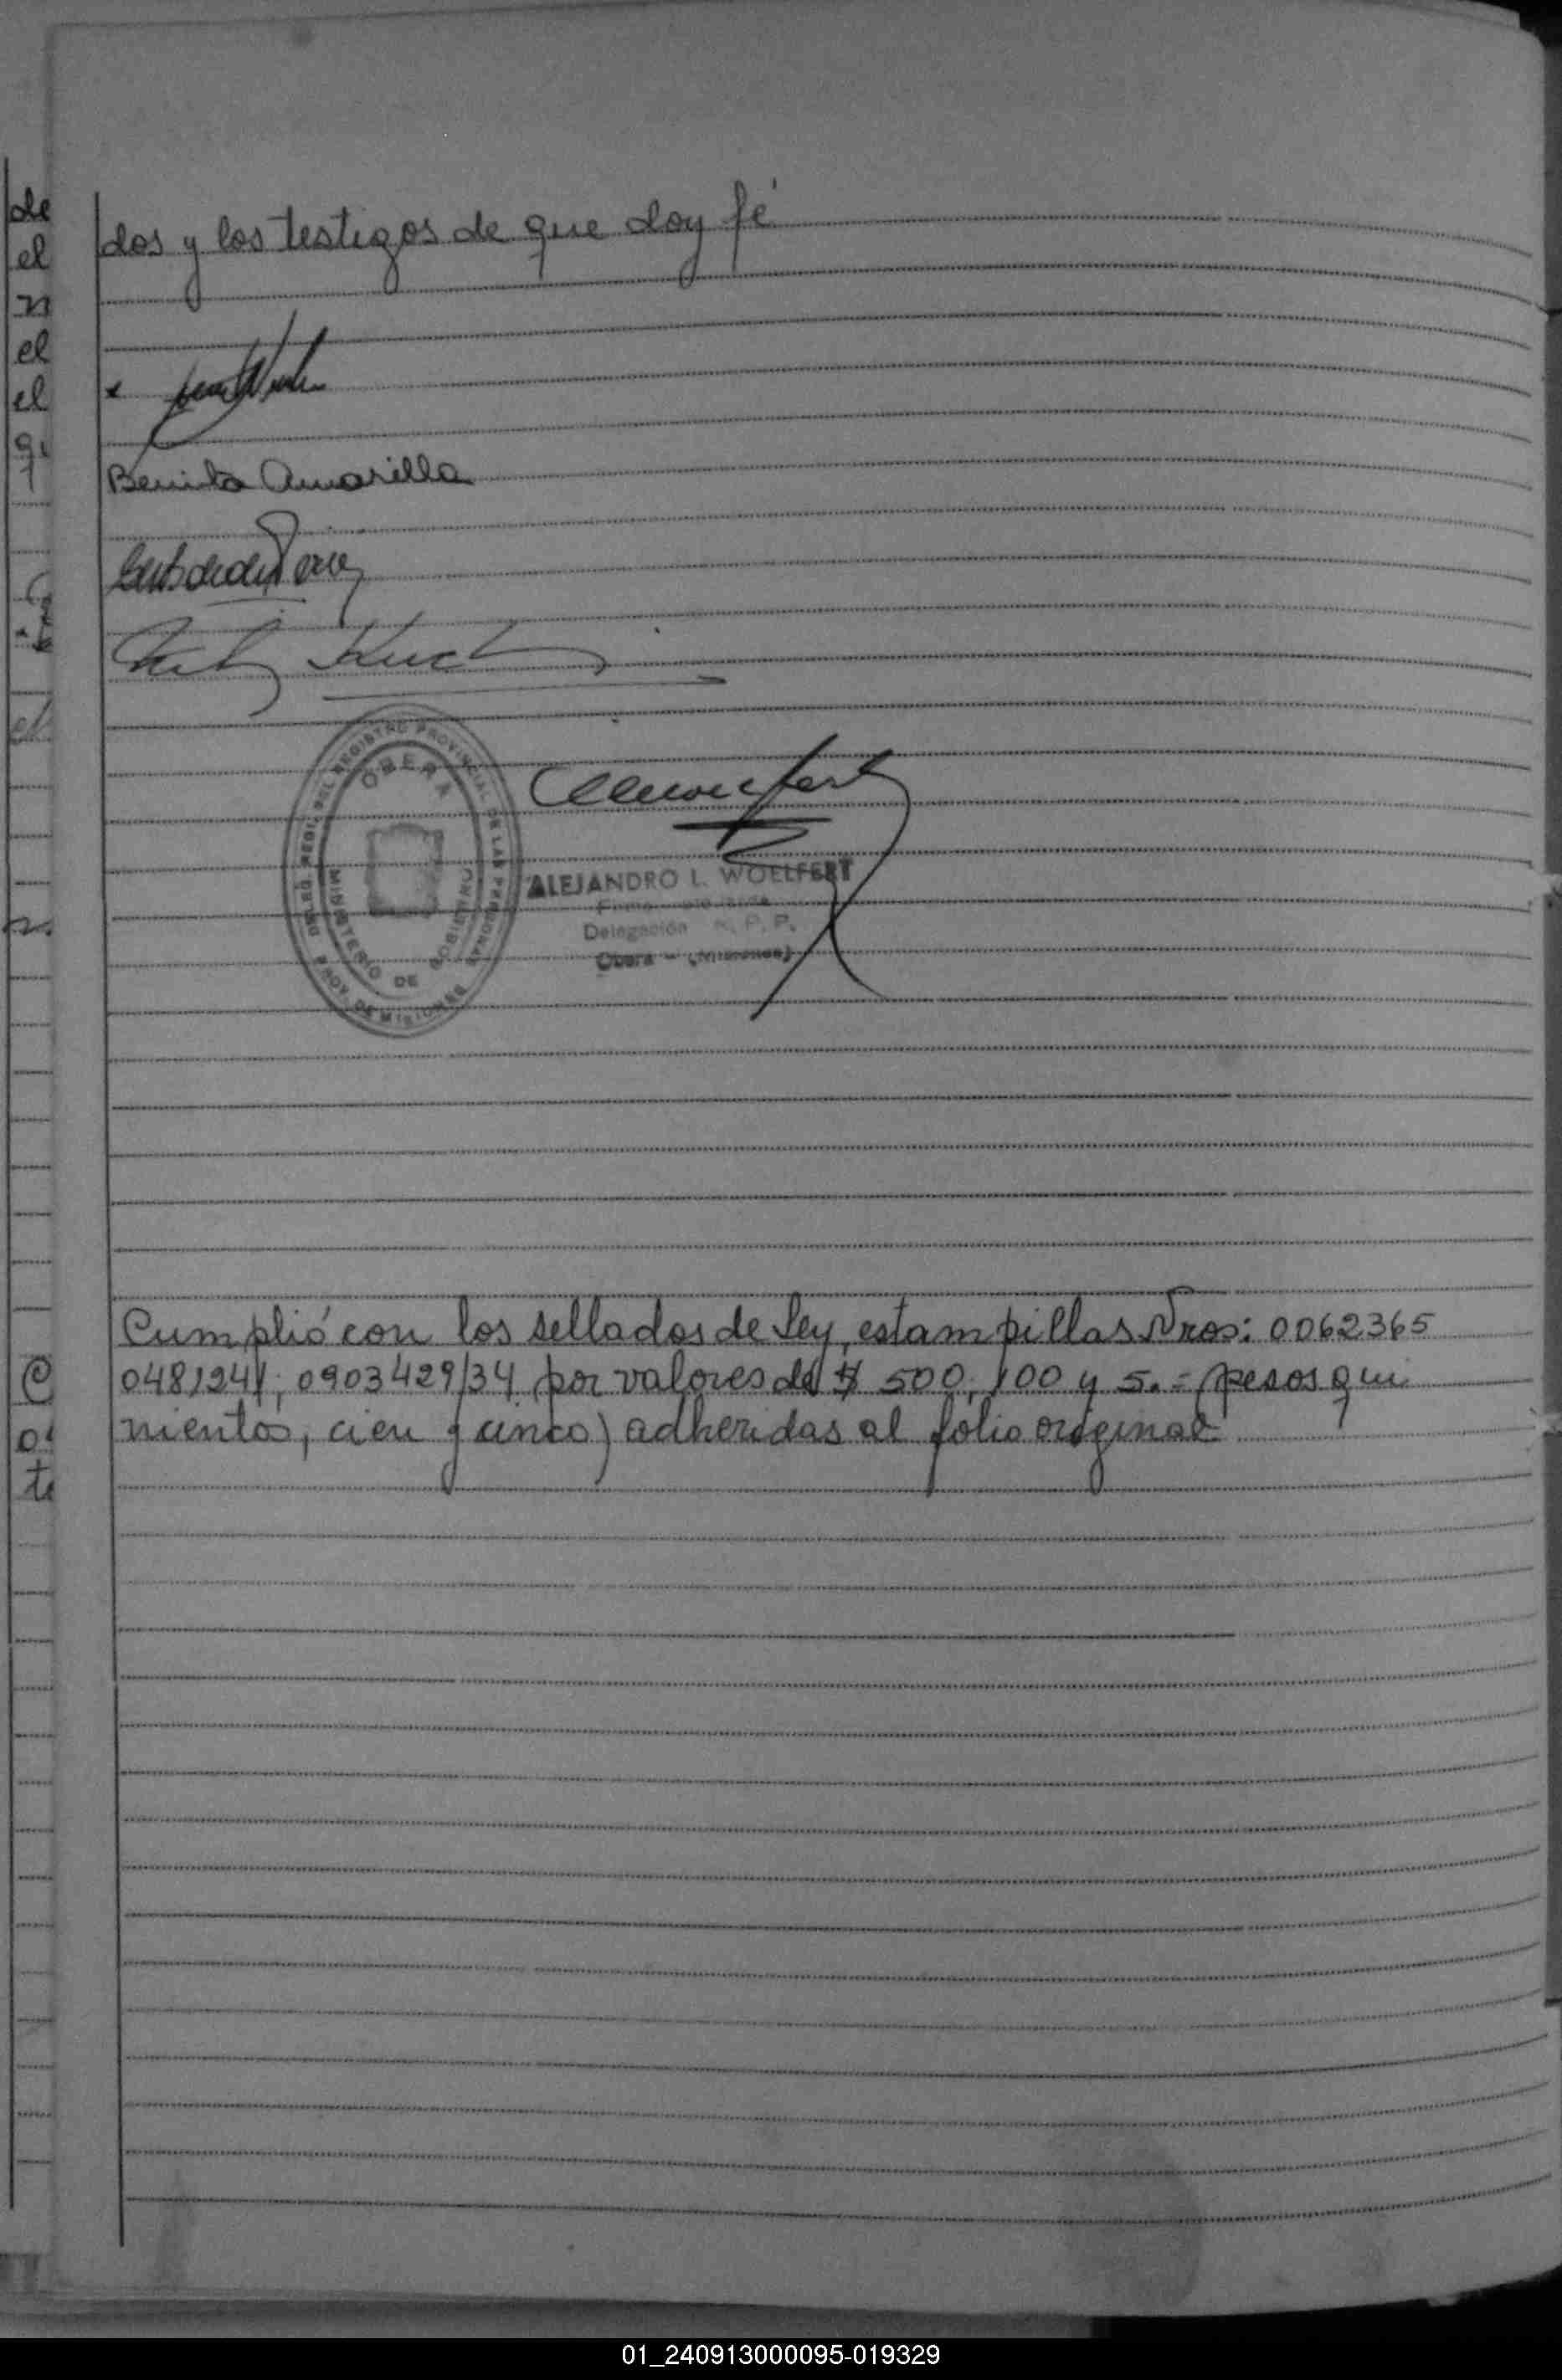 dos y los testigos de que doy fé
Benita Amarilla
DELEG. REGI. DEL REGISTRO PROVINCIAL DE LAS PERSONAS
OBERA
MINISTERIO DE GOBIERNO
PROV. DE MISIONES
ALEJANDRO L. WOELFERT
Delegación R. P. P.
Oberá - (Misiones)
Cumplió con los sellados de Ley, estampillas Nros: 0062365
0481241; 0903429/34 por valores de $ 500, 100 y 5.= pesos qui
nientos, cien y cinco) adheridas al folio original
de
el
n
el
el
qu
el
n.
C
te
01_240913000095-019329